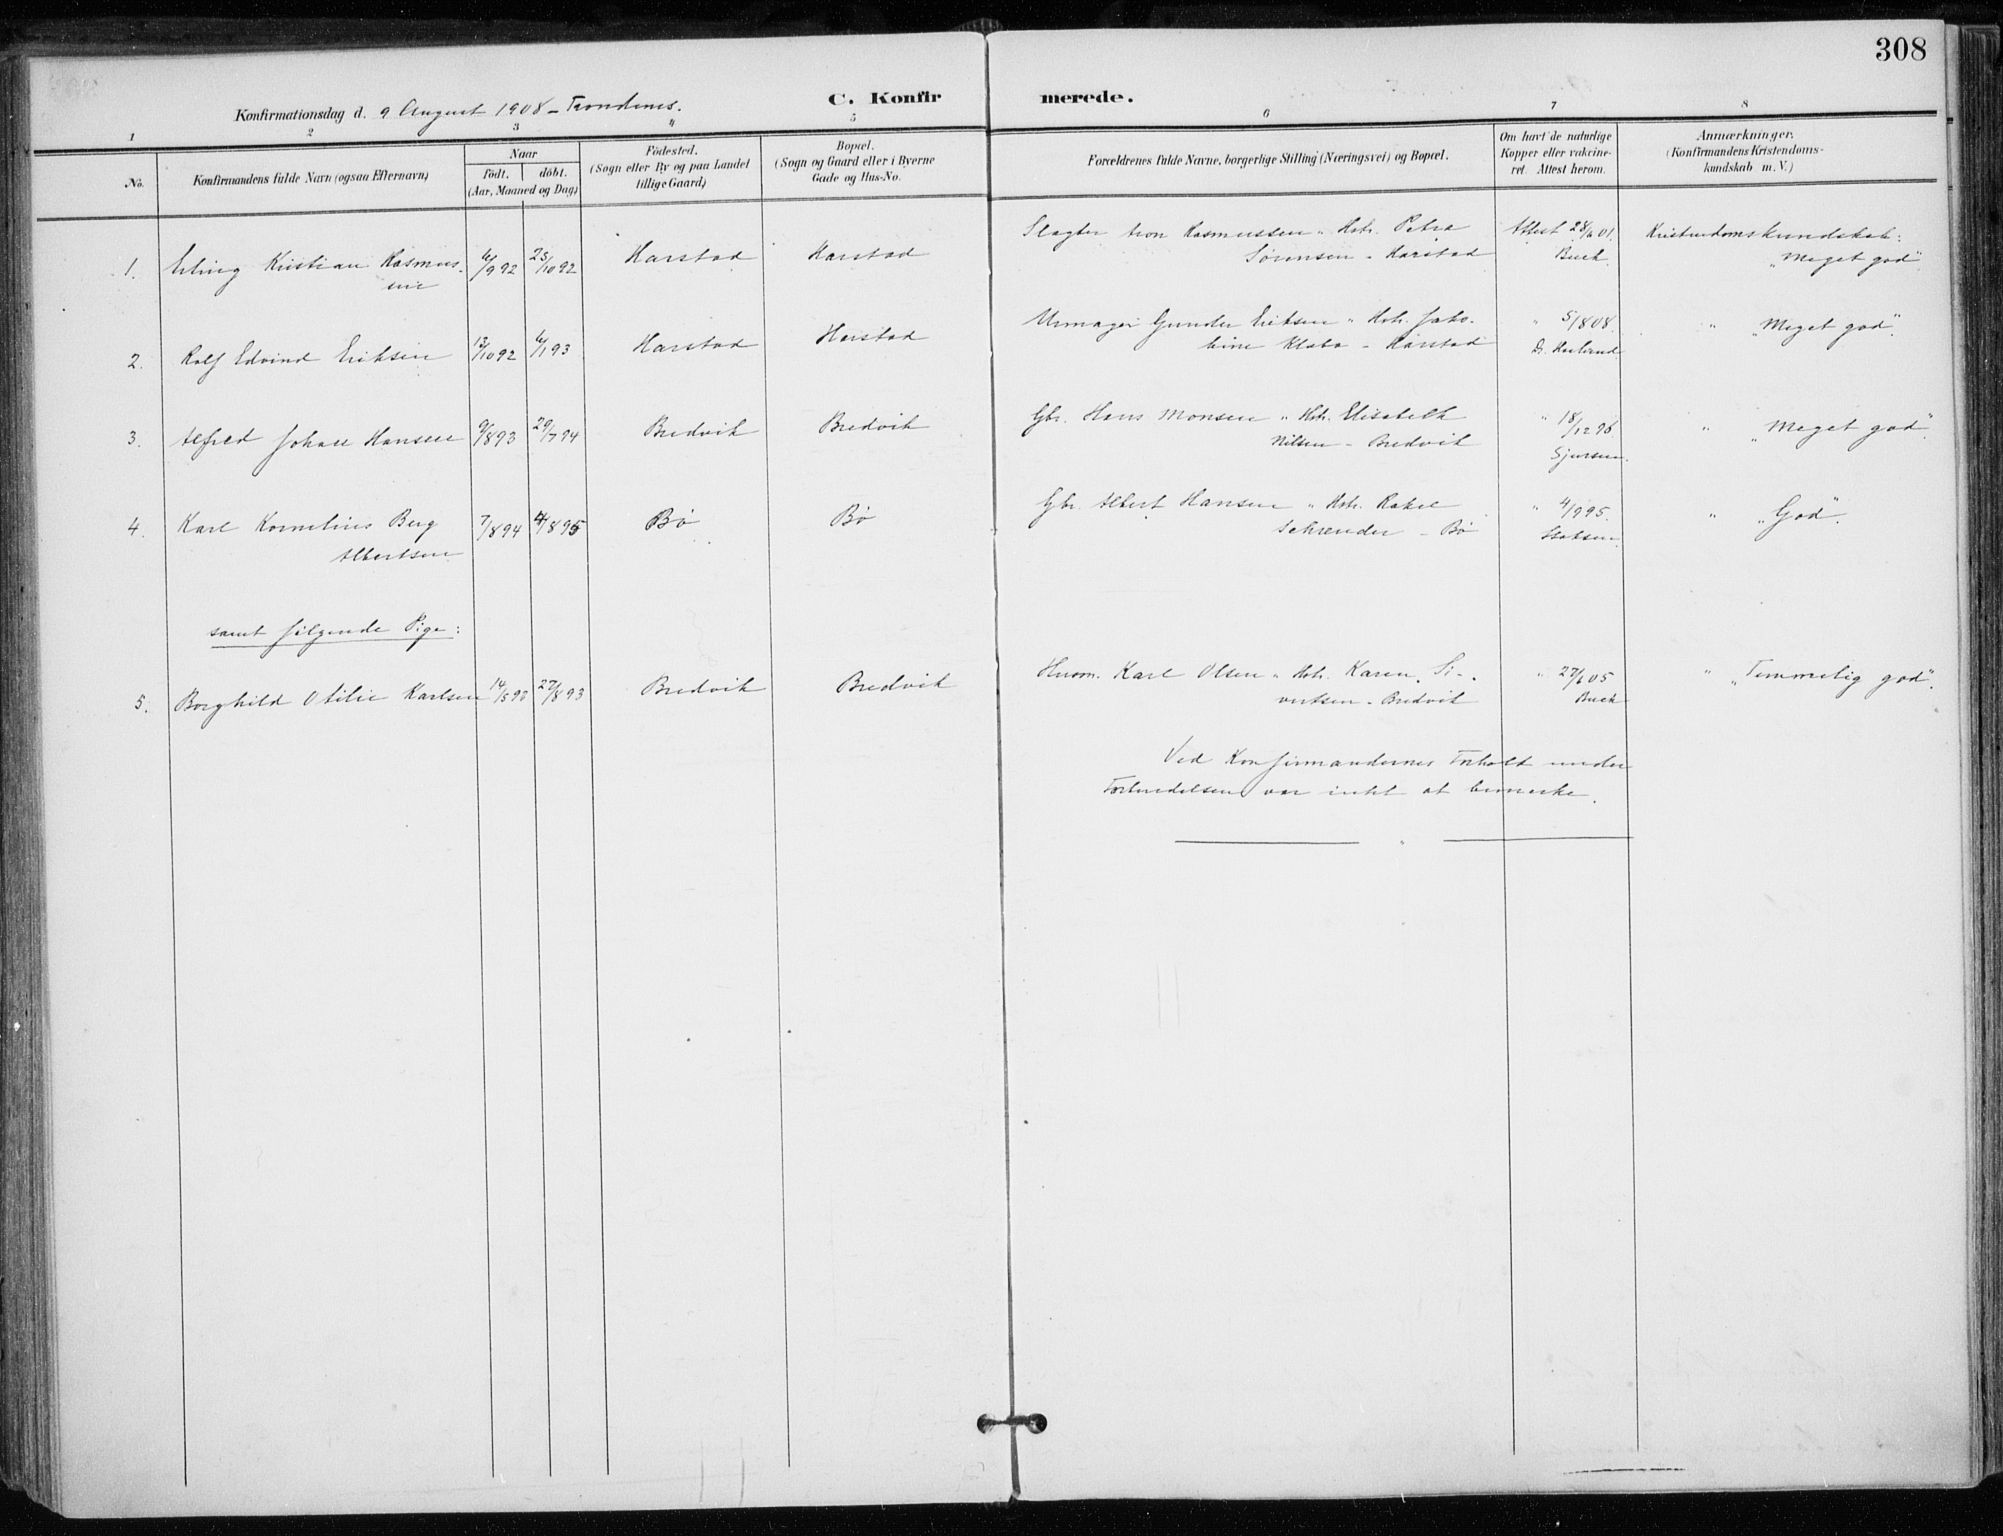 308
C. Konfirmerede.
Konfirmationsdag d. 9 August 1908 – Trondenes.
1 2 3 4 5 6 7 8
No.
Konfirmandens fulde Navn (ogsaa Efternavn)
Naar
födt. döbt.
(Aar, Maaned og Dag)
Födested.
(Sogn eller By og paa Landet
tillige Gaard)
Bopæl.
(Sogn og Gaard eller i Byerne
Gade og Hus-No.
Forældrenes fulde Navne, borgerlige Stilling (Næringsvei) og Bopæl.
Om havt de naturlige
Kopper eller vakcine-
ret. Attest herom.
Anmærkninger.
(Konfirmandens Kristendoms-
kundskab m. V.)
1. Erling Kristian Rasmus- 6/9 92 23/10 92 Harstad Harstad Slagter Rasmussen " Hstr. Petra Attest 28/6 01. Kristendomskundskab:
sen Sørensen – Harstad Buck. "Meget god".
2. Rolf Edvind Eriksen 13/10 92 6/1 93 Harstad Harstad Urmager Gunder Eriksen " Hstr. Jako- " 5/8 08. " "Meget god".
bine Klæbo – Harstad Dr.
3. Alfred Johan Hansen 9/8 93 29/7 94 Bredvik Bredvik Gbr. Hans Monsen " Hstr. Elisabeth " 18/12 96 " "Meget god".
Nilsen – Bredvik Sjursen.
4. Karl Kornelius Berg 7/8 94 4/8 95 Bø Bø Gbr. Albert Hansen " Hstr. Rakel " 4/9 95. " "God".
Albertsen Schrøder – Bø
samt følgende Pige:
5. Borghild Otilie Karlsen 14/5 93 27/8 93 Bredvik Bredvik Husm. Karl Olsen " Hstr. Karen Si- " 27/6 05 " "Temmelig god".
vertsen – Bredvik Buck
Ved Konfirmandernes Forhold under
Forberedelsen var intet at bemerke.